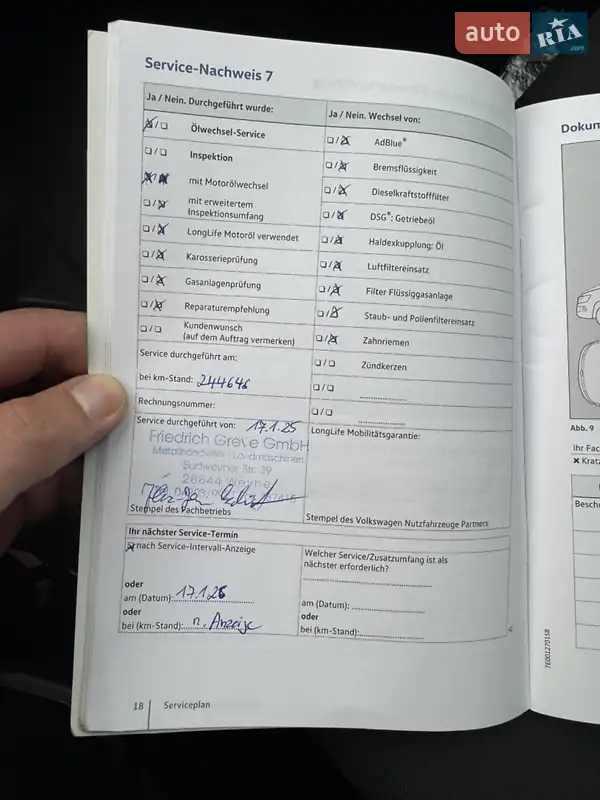 auto RIA .com
Service-Nachweis 7
Ja / Nein. Durchgeführt wurde:
Ölwechsel-Service
Inspektion
mit Motorölwechsel
mit erweitertem
Inspektionsumfang
LongLife Motoröl verwendet
Karosserieprüfung
Gasanlagenprüfung
Reparaturempfehlung
Kundenwunsch
(auf dem Auftrag vermerken)
Service durchgeführt am:
bei km-Stand: 244646
Rechnungsnummer:
Service durchgeführt von: 17.1.25
Friedrich Greve GmbH
Sudweyher Str. 39
28844 Weyhe
Stempel des Fachbetriebs
Ja / Nein. Wechsel von:
AdBlue®
Bremsflüssigkeit
Dieselkraftstofffilter
DSG®: Getriebeöl
Haldexkupplung: Öl
Luftfiltereinsatz
Filter Flüssiggasanlage
Staub- und Pollenfiltereinsatz
Zahnriemen
Zündkerzen
LongLife Mobilitätsgarantie:
Stempel des Volkswagen Nutzfahrzeuge Partners
Ihr nächster Service-Termin
nach Service-Intervall-Anzeige
oder
am (Datum): 17.1.26
oder
bei (km-Stand): n. Anzeige
Welcher Service/Zusatzumfang ist als
nächster erforderlich?
am (Datum):
bei (km-Stand):
18 Serviceplan
7E0012701SB
Dokum
Abb. 9
Ihr Fac
Kratz
Beschr